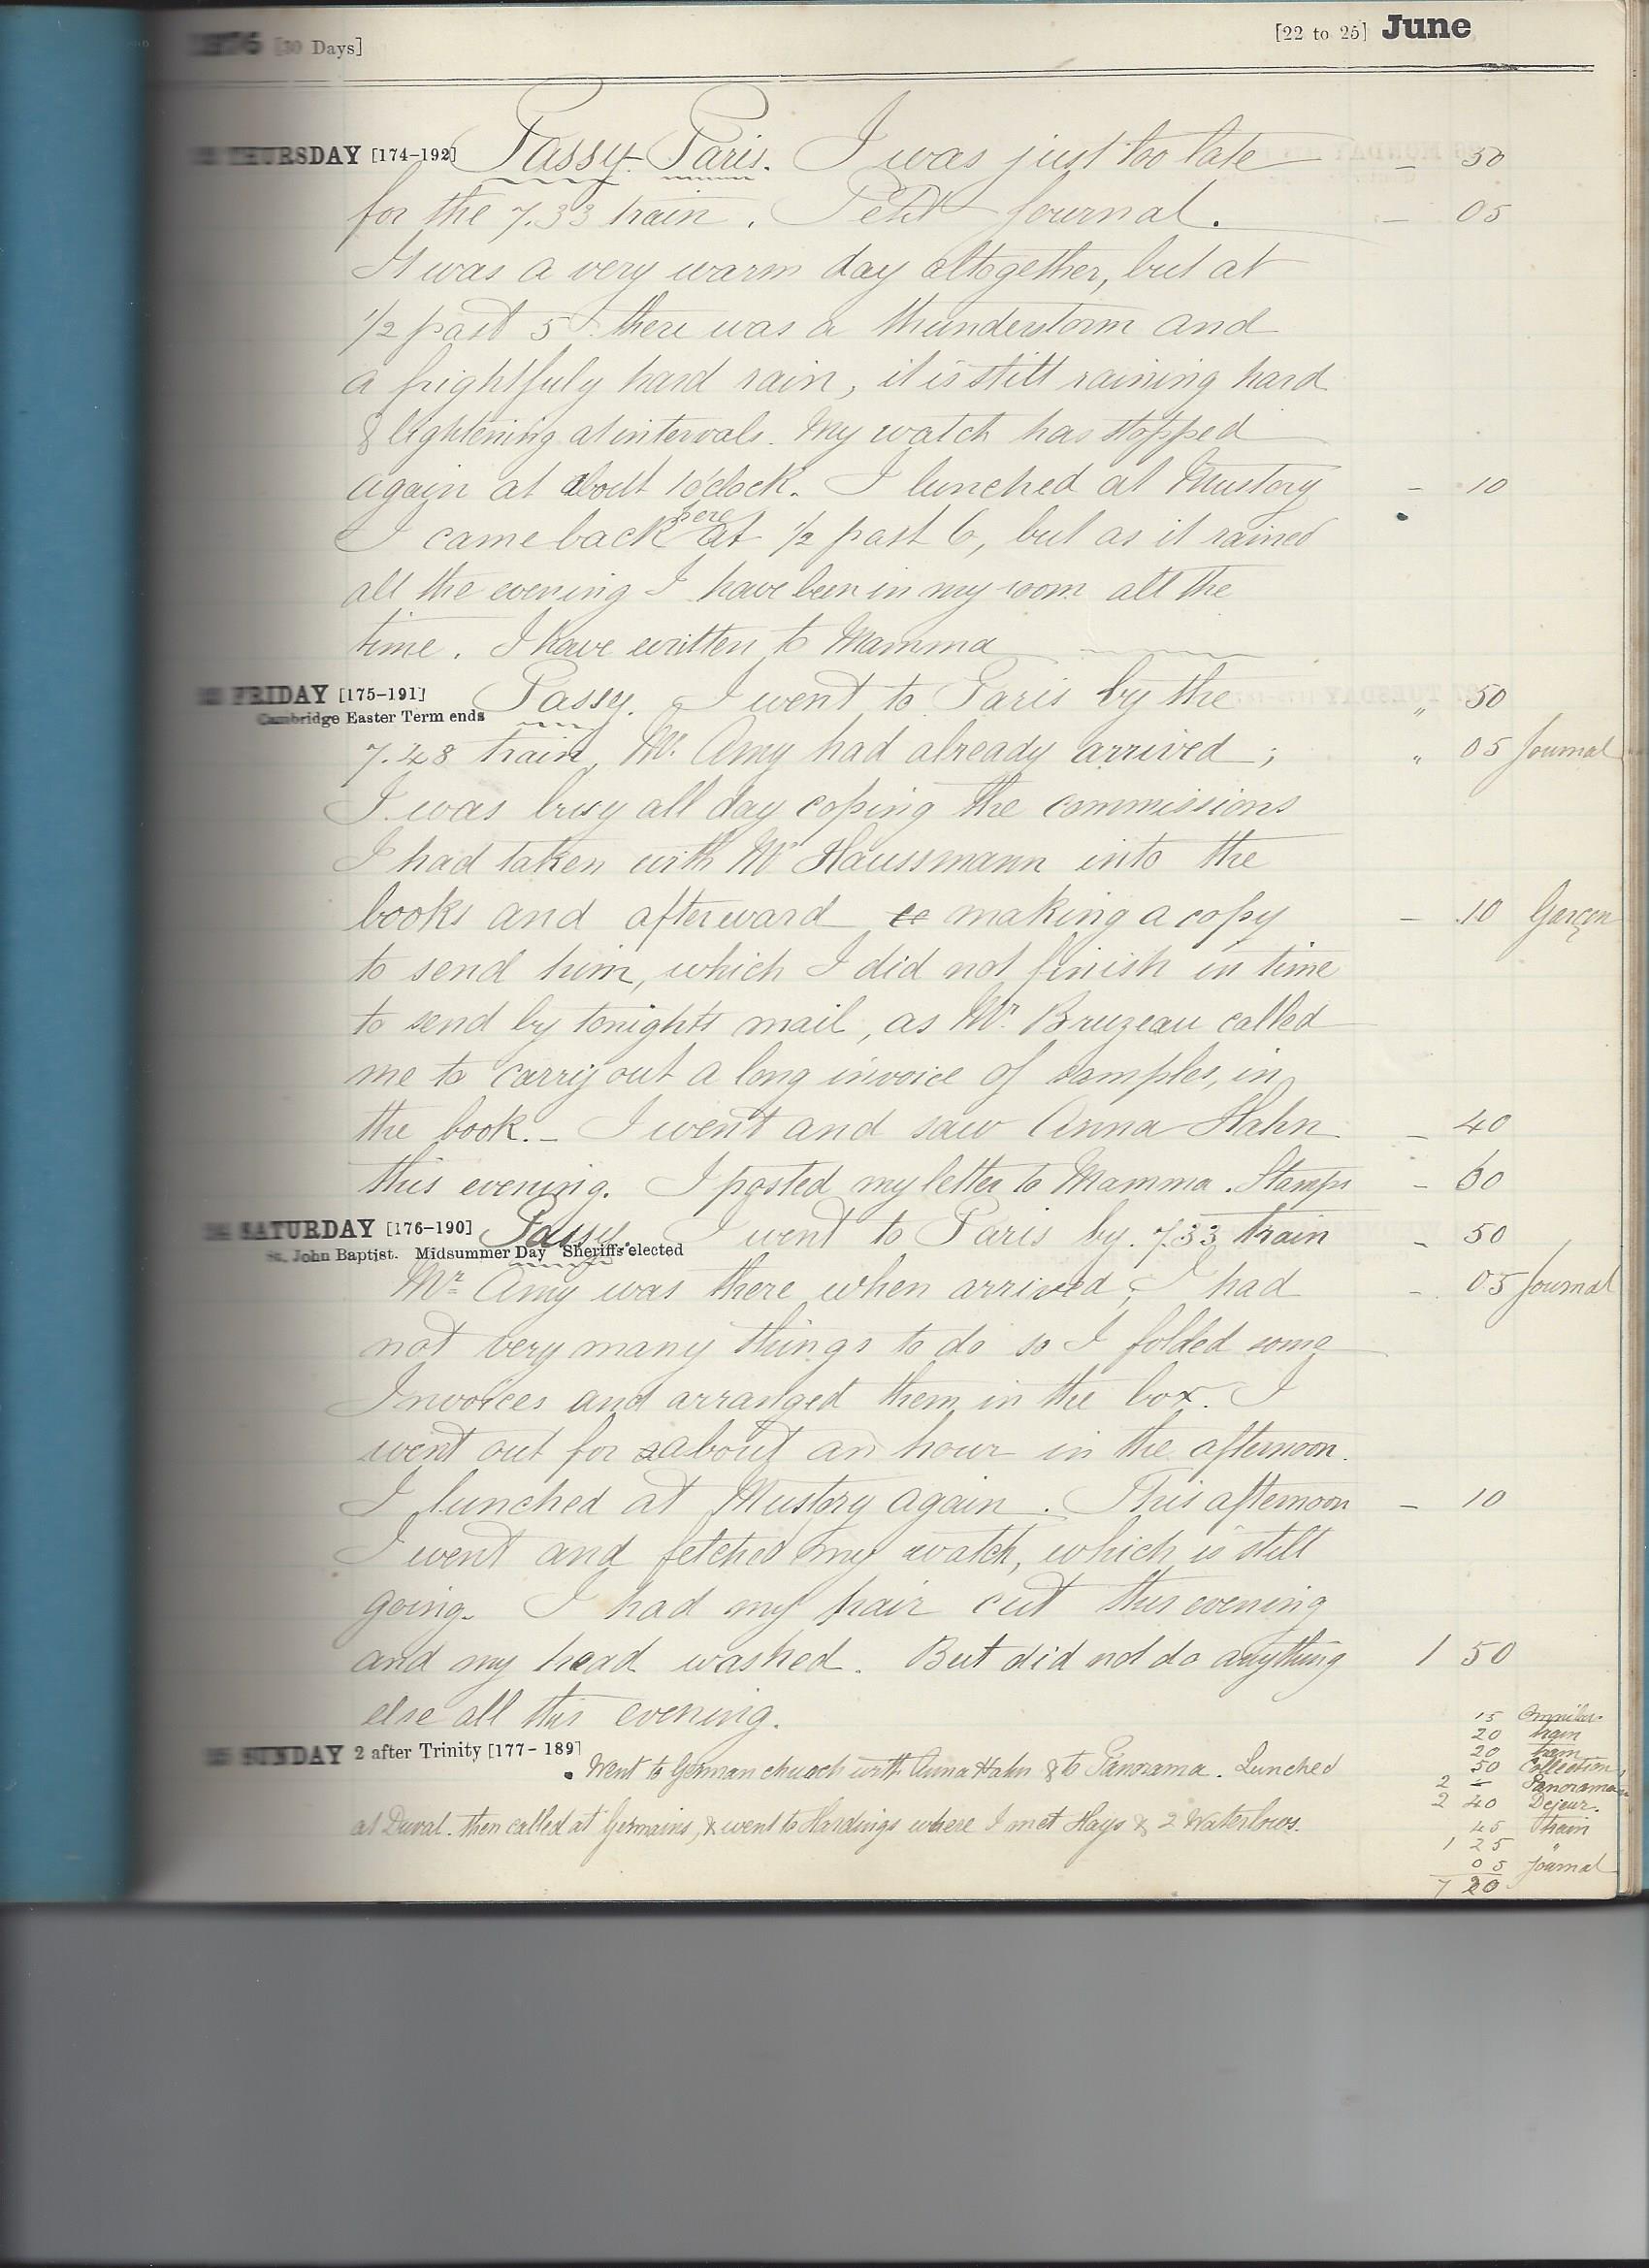 1876 [30 Days] [22 to 25] June
22 THURSDAY [174-192] Passy - Paris. I was just too late — 50
for the 7.33 train. Petit Journal. — 05
It was a very warm day altogether, but at
1/2 past 5 there was a thunderstorm and
a frightfuly hard rain, it is still raining hard
& lightening at intervals. My watch has stopped
again at about 1 o'clock. I lunched at Mustory — 10
I came back here at 1/2 past 6, but as it rained
all the evening I have been in my room all the
time. I have written to Mamma
23 FRIDAY [175-191] Passy. I went to Paris by the „ 50
Cambridge Easter Term ends
7.48 train, Mr. Amy had already arrived; „ 05 Journal
I was busy all day coping the commissions
I had taken with Mr Haussmann into the
books and afterward making a copy — 10 Garçon
to send him, which I did not finish in time
to send by tonights mail, as Mr. Bruzeau called
me to carry out a long invoice of samples, in
the book. — I went and saw Anna Hahn — 40
this evening. I posted my letter to Mamma. Stamps — 60
24 SATURDAY [176-190] Passy. I went to Paris by 7.33 train — 50
St. John Baptist. Midsummer Day Sheriffs elected
Mr. Amy was there when arrived; I had — 05 Journal
not very many things to do so I folded some
Invoices and arranged them in the box. I
went out for about an hour in the afternoon.
I lunched at Mustory again. This afternoon — 10
I went and fetched my watch, which is still
going. I had my hair cut this evening
and my head washed. But did not do anything 1 50
else all this evening.
15 Omnibus
20 train
20 train
25 SUNDAY 2 after Trinity [177-189]
50 Collection
. Went to German church with Anna Hahn & to Panorama. Lunched
2 — Panorama
2 40 Dejeur.
at Duval. then called at Germains, & went to Hardings where I met Hays & 2 Waterlows.
45 train
1 25 "
05 Journal
7 20